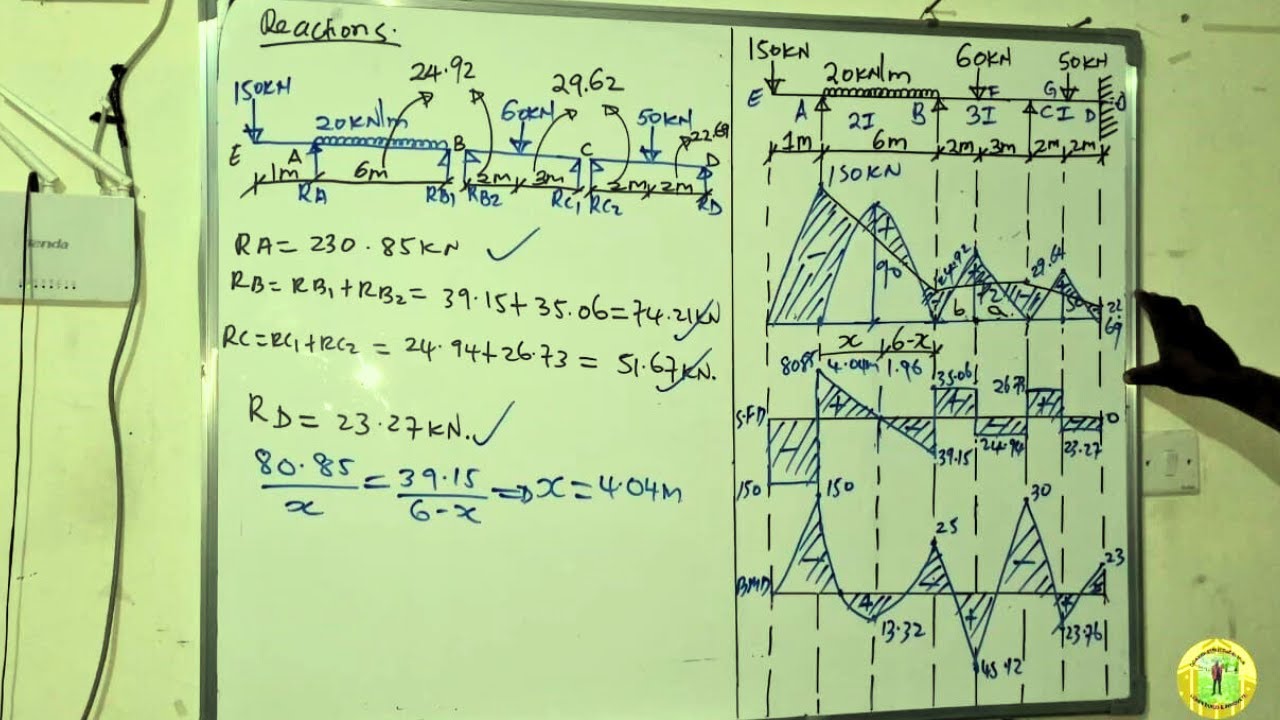 Reactions.
24.92
29.62
150KN
60KN
50KN
22.69
20KN/m
E A B C D
1m 6m 2m 3m 2m 2m
RA RB1 RB2 RC1 RC2 RD
RA = 230.85KN
RB = RB1 + RB2 = 39.15 + 35.06 = 74.21KN
RC = RC1 + RC2 = 24.94 + 26.73 = 51.67KN.
RD = 23.27KN.
80.85/x = 39.15/6-x => x = 4.04m
150KN 60KN 50KN
20KN/m
E A 2I B F 3I G C I D
1m 6m 2m 3m 2m 2m
150KN
+ 24.92 29.64
- 90 + 72 - 50 22.69
b a
x 6-x
80.85 4.04m 1.96 35.06 26.73
S.F.D + + + 0
- - 39.15 24.94 23.27
150 150 30
25 23
BMD - + - + - +
13.32 23.76
45.92
tenda